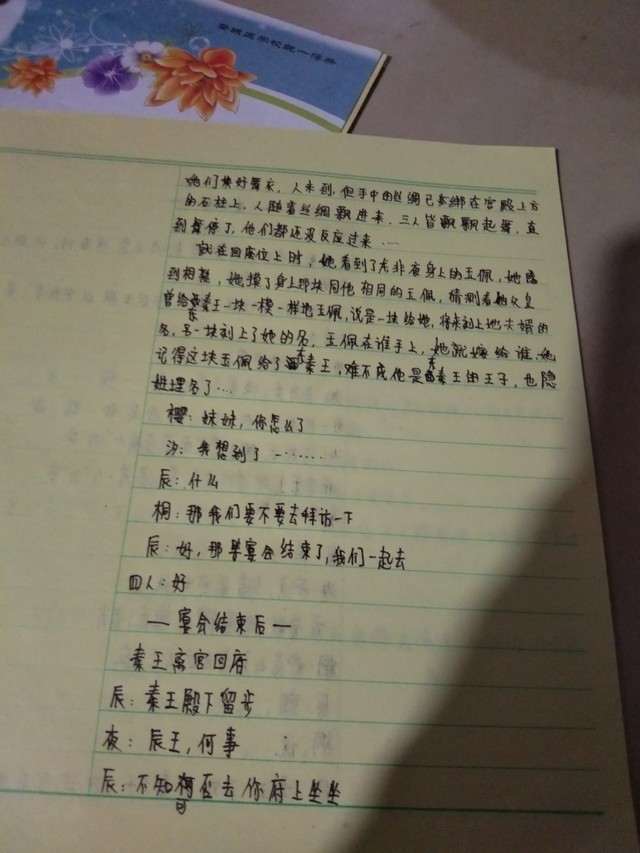 学校统一
她们换好舞衣，人未到，但手中的丝绸已系绑在宫殿上方
的石柱上，人随着丝绸飘进来，三人皆飘飘起舞，直
到舞停了，他们都还没反应过来……
就在回座位上时，她看到了尤非夜身上的玉佩，她感
到相熟，她摸了身上那块同他相同的玉佩，猜测着她父皇
曾给东秦王一块一模一样地玉佩，说是一块给她，将来刻上她夫婿的
名，另一块刻上了她的名，玉佩在谁手上，她就嫁给谁，她
记得这块玉佩给了东秦王，难不成他是东秦王的王子，也隐
姓埋名了……
樱：妹妹，你怎么了
汐：我想到了……
辰：什么
桐：那我们要不要去拜访一下
辰：好，那等宴会结束了，我们一起去
四人：好
— 宴会结束后 —
秦王离宫回府
辰：秦王殿下留步
夜：辰王，何事
辰：不知可否去你府上坐坐